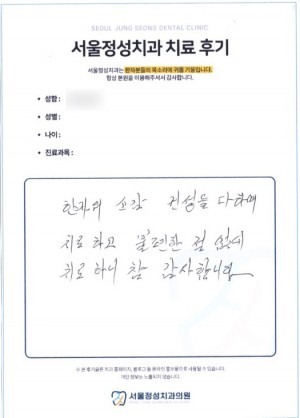 SEOUL JUNG SEONG DENTAL CLINIC
서울정성치과 치료 후기
서울정성치과는 환자분들의 목소리에 귀를 기울입니다.
항상 본원을 이용해주셔서 감사합니다.
• 성함 :
• 성별 :
• 나이 :
• 진료과목 :
한자의 쓰감 진성들 다하며
치료 하고 불편한 점 없이
치료 하니 참 감사합니다
※ 본 후기글은 치과 홈페이지, 블로그 등 온라인 홍보용으로 사용될 수 있습니다.
개인 정보는 노출되지 않습니다.
서울정성치과의원